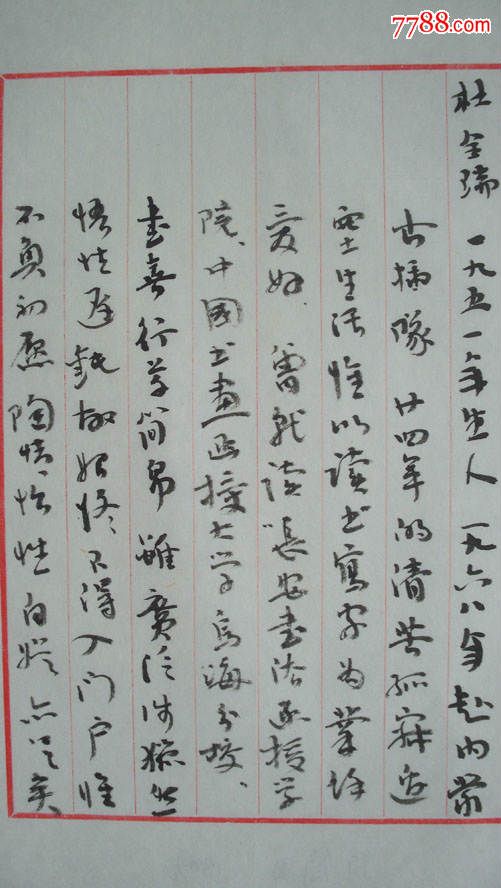 7788.com
杜全瑞 一九五一年生人 一九六八年赴内蒙
古插队 廿四年的清苦孤寂边
塞生活惟以读书寫字为業餘
爱好、曾就读長安書法函授学
院、中国书画函授大学烏海分校、
書善行草简帛 雖廣泛涉猎然
悟性遲鈍故始终不得入门户惟
不負初愿陶情怡性自娱亦足矣